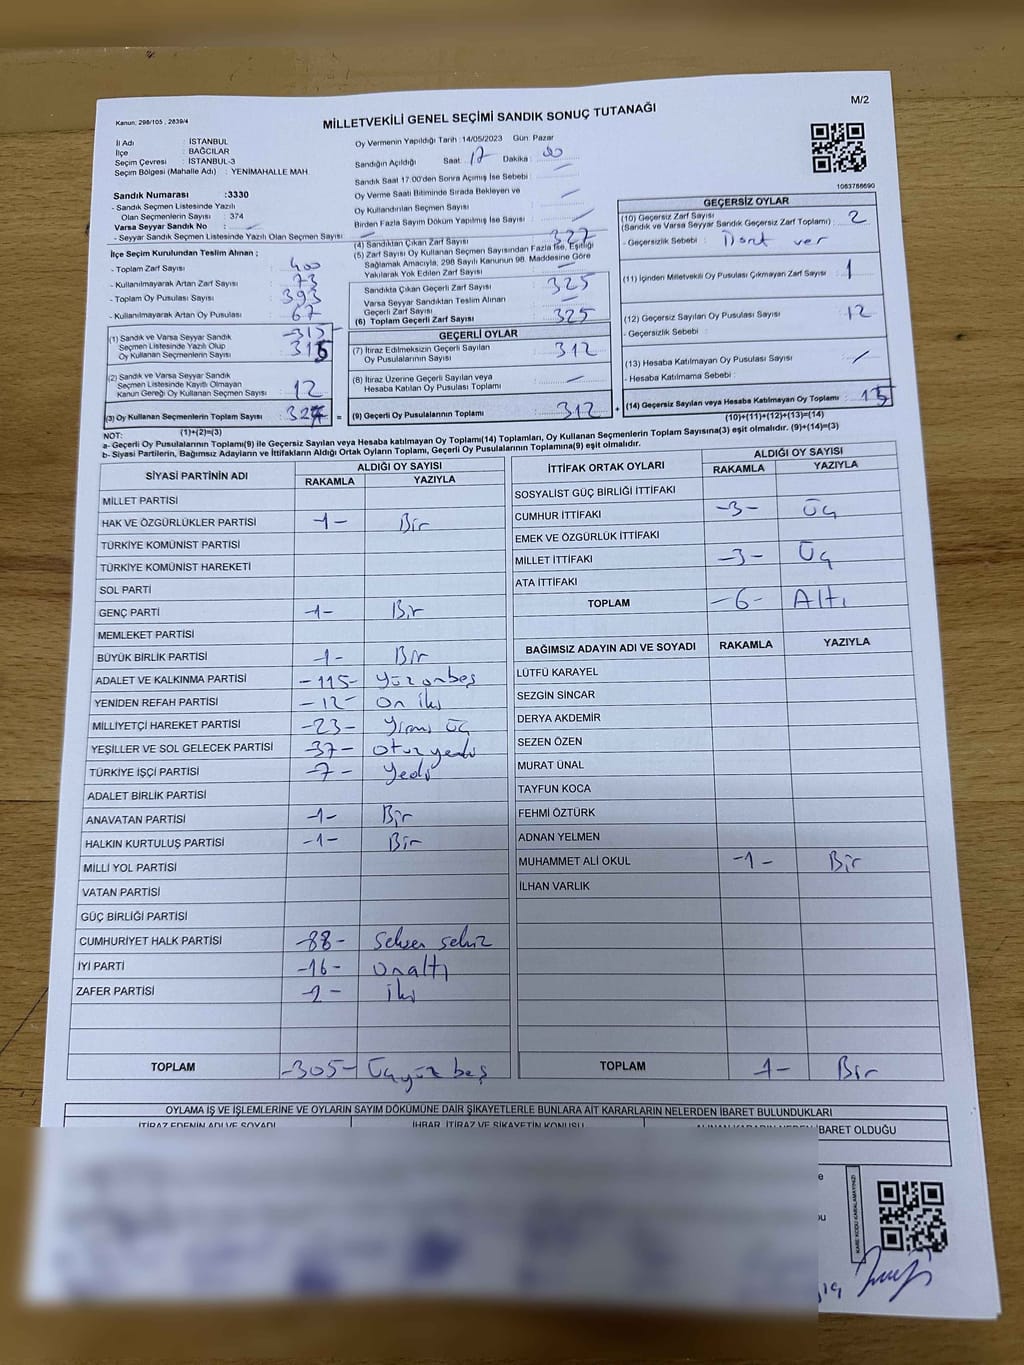 Kanun: 298/105 , 2839/4
M/2
MİLLETVEKİLİ GENEL SEÇİMİ SANDIK SONUÇ TUTANAĞI
İl Adı : İSTANBUL
İlçe : BAĞCILAR
Seçim Çevresi : İSTANBUL-3
Seçim Bölgesi (Mahalle Adı) : YENİMAHALLE MAH.
Sandık Numarası :3330
- Sandık Seçmen Listesinde Yazılı
Olan Seçmenlerin Sayısı : 374
Varsa Seyyar Sandık No :
- Seyyar Sandık Seçmen Listesinde Yazılı Olan Seçmen Sayısı:
İlçe Seçim Kurulundan Teslim Alınan ;
- Toplam Zarf Sayısı : 400
- Kullanılmayarak Artan Zarf Sayısı : 73
- Toplam Oy Pusulası Sayısı : 393
- Kullanılmayarak Artan Oy Pusulası : 67
(1) Sandık ve Varsa Seyyar Sandık
Seçmen Listesinde Yazılı Olup
Oy Kullanan Seçmenlerin Sayısı : 315
(2) Sandık ve Varsa Seyyar Sandık
Seçmen Listesinde Kayıtlı Olmayan
Kanun Gereği Oy Kullanan Seçmen Sayısı : 12
(3) Oy Kullanan Seçmenlerin Toplam Sayısı :
(1)+(2)=(3)
Oy Vermenin Yapıldığı Tarih : 14/05/2023 Gün: Pazar
Sandığın Açıldığı Saat: 17 Dakika : 00
Sandık Saat 17:00'den Sonra Açımış İse Sebebi :
Oy Verme Saati Bitiminde Sırada Bekleyen ve
Oy Kullandırılan Seçmen Sayısı :
Birden Fazla Sayım Döküm Yapılmış İse Sayısı :
(4) Sandıktan Çıkan Zarf Sayısı : 327
(5) Zarf Sayısı Oy Kullanan Seçmen Sayısından Fazla İse, Eşitliği
Sağlamak Amacıyla, 298 Sayılı Kanunun 98. Maddesine Göre
Yakılarak Yok Edilen Zarf Sayısı :
Sandıkta Çıkan Geçerli Zarf Sayısı : 325
Varsa Seyyar Sandıktan Teslim Alınan
Geçerli Zarf Sayısı :
(6) Toplam Geçerli Zarf Sayısı : 325
GEÇERLİ OYLAR
(7) İtiraz Edilmeksizin Geçerli Sayılan
Oy Pusulalarının Sayısı : 312
(8) İtiraz Üzerine Geçerli Sayılan veya
Hesaba Katılan Oy Pusulası Toplamı :
= (9) Geçerli Oy Pusulalarının Toplamı : 312
1063786690
GEÇERSİZ OYLAR
(10) Geçersiz Zarf Sayısı
(Sandık ve Varsa Seyyar Sandık Geçersiz Zarf Toplamı) : 2
- Geçersizlik Sebebi :
(11) İçinden Milletvekili Oy Pusulası Çıkmayan Zarf Sayısı : 1
(12) Geçersiz Sayılan Oy Pusulası Sayısı : 12
- Geçersizlik Sebebi :
(13) Hesaba Katılmayan Oy Pusulası Sayısı :
- Hesaba Katılmama Sebebi :
+ (14) Geçersiz Sayılan veya Hesaba Katılmayan Oy Toplamı : 15
(10)+(11)+(12)+(13)=(14)
NOT:
a- Geçerli Oy Pusulalarının Toplamı(9) ile Geçersiz Sayılan veya Hesaba katılmayan Oy Toplamı(14) Toplamları, Oy Kullanan Seçmenlerin Toplam Sayısına(3) eşit olmalıdır. (9)+(14)=(3)
b- Siyasi Partilerin, Bağımsız Adayların ve İttifakların Aldığı Ortak Oyların Toplamı, Geçerli Oy Pusulalarının Toplamına(9) eşit olmalıdır.
SİYASİ PARTİNİN ADI ALDIĞI OY SAYISI
RAKAMLA YAZIYLA
MİLLET PARTİSİ
HAK VE ÖZGÜRLÜKLER PARTİSİ -1- Bir
TÜRKİYE KOMÜNİST PARTİSİ
TÜRKİYE KOMÜNİST HAREKETİ
SOL PARTİ
GENÇ PARTİ -1- Bir
MEMLEKET PARTİSİ
BÜYÜK BİRLİK PARTİSİ -1- Bir
ADALET VE KALKINMA PARTİSİ -115- Yüzonbeş
YENİDEN REFAH PARTİSİ -12- On iki
MİLLİYETÇİ HAREKET PARTİSİ -23- Yirmi üç
YEŞİLLER VE SOL GELECEK PARTİSİ -37- otuzyedi
TÜRKİYE İŞÇİ PARTİSİ -7- Yedi
ADALET BİRLİK PARTİSİ
ANAVATAN PARTİSİ -1- Bir
HALKIN KURTULUŞ PARTİSİ -1- Bir
MİLLİ YOL PARTİSİ
VATAN PARTİSİ
GÜÇ BİRLİĞİ PARTİSİ
CUMHURİYET HALK PARTİSİ -88- Seksen sekiz
İYİ PARTİ -16- onaltı
ZAFER PARTİSİ -2- iki
TOPLAM -305- Üçyüz beş
İTTİFAK ORTAK OYLARI ALDIĞI OY SAYISI
RAKAMLA YAZIYLA
SOSYALİST GÜÇ BİRLİĞİ İTTİFAKI
CUMHUR İTTİFAKI -3- Üç
EMEK VE ÖZGÜRLÜK İTTİFAKI
MİLLET İTTİFAKI -3- Üç
ATA İTTİFAKI
TOPLAM -6- Altı
BAĞIMSIZ ADAYIN ADI VE SOYADI RAKAMLA YAZIYLA
LÜTFÜ KARAYEL
SEZGİN SİNCAR
DERYA AKDEMİR
SEZEN ÖZEN
MURAT ÜNAL
TAYFUN KOCA
FEHMİ ÖZTÜRK
ADNAN YELMEN
MUHAMMET ALİ OKUL -1- Bir
İLHAN VARLIK
TOPLAM 1- Bir
OYLAMA İŞ VE İŞLEMLERİNE VE OYLARIN SAYIM DÖKÜMÜNE DAİR ŞİKAYETLERLE BUNLARA AİT KARARLARIN NELERDEN İBARET BULUNDUKLARI
İTİRAZ EDENİN ADI VE SOYADI İHBAR, İTİRAZ VE ŞİKAYETİN KONUSU ALINAN KARARIN NEDEN İBARET OLDUĞU
KARE KODU KARALAMAYINIZ!